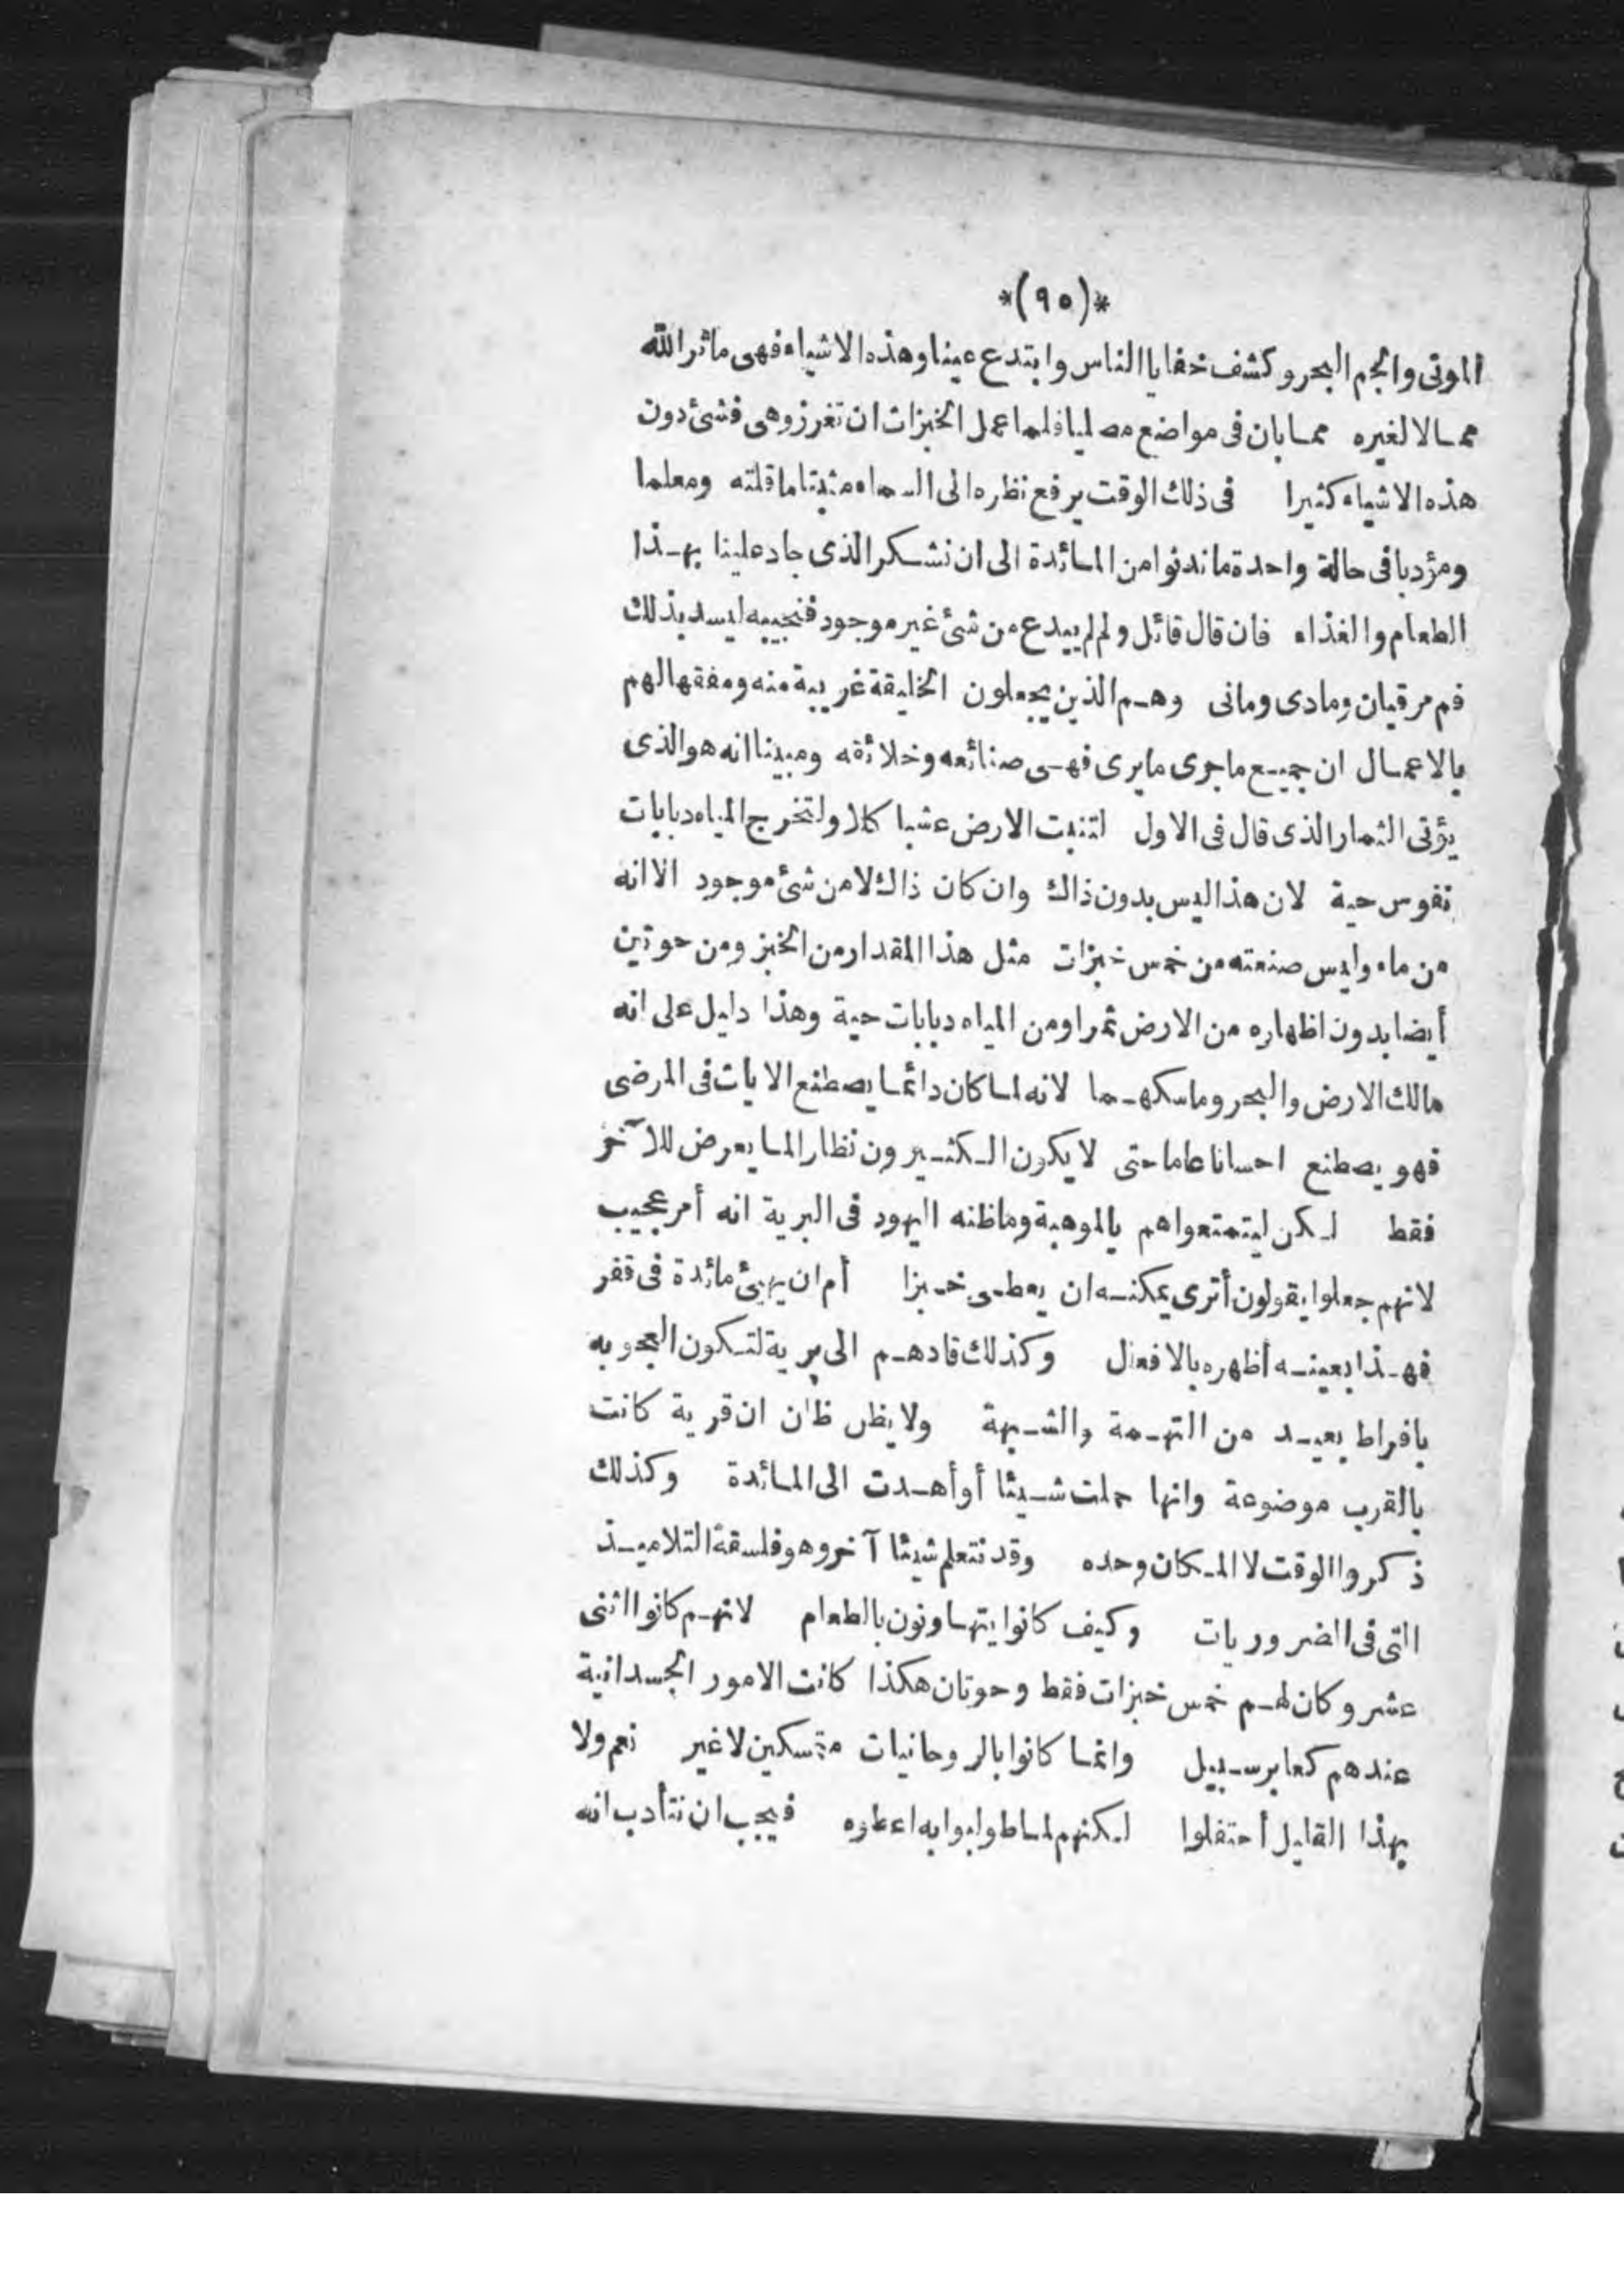 *(٩٥)*
الموتى والجم البحر وكشف خفايا الناس وابتدع عينا وهذه الاشياء فهى مآثر الله
ممالا لغيره مما بان فى مواضع مصليا فلما عمل الخبزات ان تغرز وهى فشئ دون
هذه الاشياء كثيرا فى ذلك الوقت يرفع نظره الى السماء مثبتا ما قلته ومعلما
ومؤدبا فى حالة واحدة ما ندنوا من المائدة الى ان نشكر الذى جاد علينا بهذا
الطعام والغذاء فان قال قائل ولم لم يبدع من شئ غير موجود فنجيبه ليسد بذلك
فم مرقيان ومادى ومانى وهم الذين يجعلون الخليقة غريبة منه ومفقها لهم
بالاعمال ان جميع ماجرى مايرى فهى صنائعه وخلائقه ومبينا انه هو الذى
يؤتى الثمار الذى قال فى الاول لتنبت الارض عشبا كلا ولتخرج المياه دبابات
نفوس حية لان هذا ليس بدون ذاك وان كان ذاك لا من شئ موجود الا انه
من ماء وليس صنعته من خمس خبزات مثل هذا المقدار من الخبز ومن حوتين
أيضا بدون اظهاره من الارض ثمرا ومن المياه دبابات حية وهذا دليل على انه
مالك الارض والبحر وماسكهما لانه لما كان دائما يصطنع الايات فى المرضى
فهو يصطنع احسانا عاما حتى لا يكون الكثيرون نظارا لما يعرض للآخر
فقط لكن ليتمتعوا هم بالموهبة وما ظنه اليهود فى البرية انه أمر عجيب
لانهم جعلوا يقولون أترى يمكنه ان يعطى خبزا أم ان يهيئ مائدة فى قفر
فهذا بعينه أظهره بالافعال وكذلك قادهم الى برية لتكون العجوبه
بافراط بعيد من التهمة والشبهة ولا يظن ظان ان قرية كانت
بالقرب موضوعة وانها حملت شيئا أو أهدت الى المائدة وكذلك
ذكروا الوقت لا المكان وحده وقد نتعلم شيئا آخر وهو فلسفة التلاميذ
التى فى الضروريات وكيف كانوا يتهاونون بالطعام لانهم كانوا اثنى
عشر وكان لهم خمس خبزات فقط وحوتان هكذا كانت الامور الجسدانية
عندهم كعابر سبيل وانما كانوا بالروحانيات متمسكين لا غير نعم ولا
بهذا القليل أحتفلوا لكنهم لما طولبوا به اعطوه فيجب ان نتأدب انه